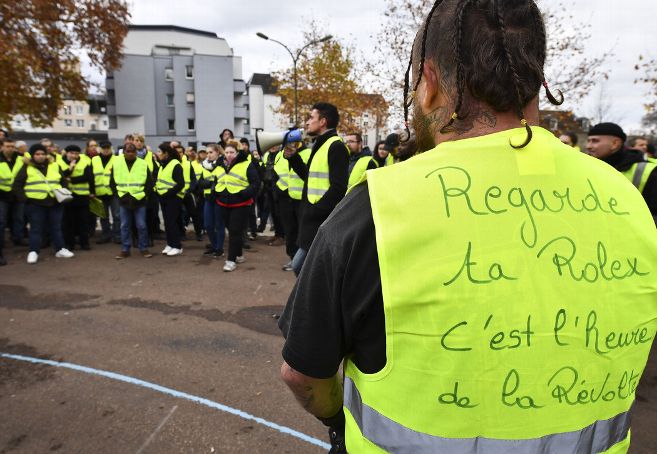 Regarde
ta Rolex
C'est l'Heure
de la Révolte